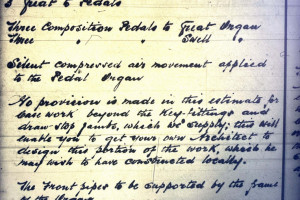 Great to Pedals
Three Composition Pedals to Great Organ
Three " " Swell "
Silent compressed air movement applied
to the Pedal Organ
No provision is made in this estimate for
case work beyond the Key-fittings and
draw stop jambs, which we supply; this will
enable you to get your own Architect to
design this portion of the work, which he
may wish to have constructed locally.
The Front pipes to be supported by the frame
of the Organ